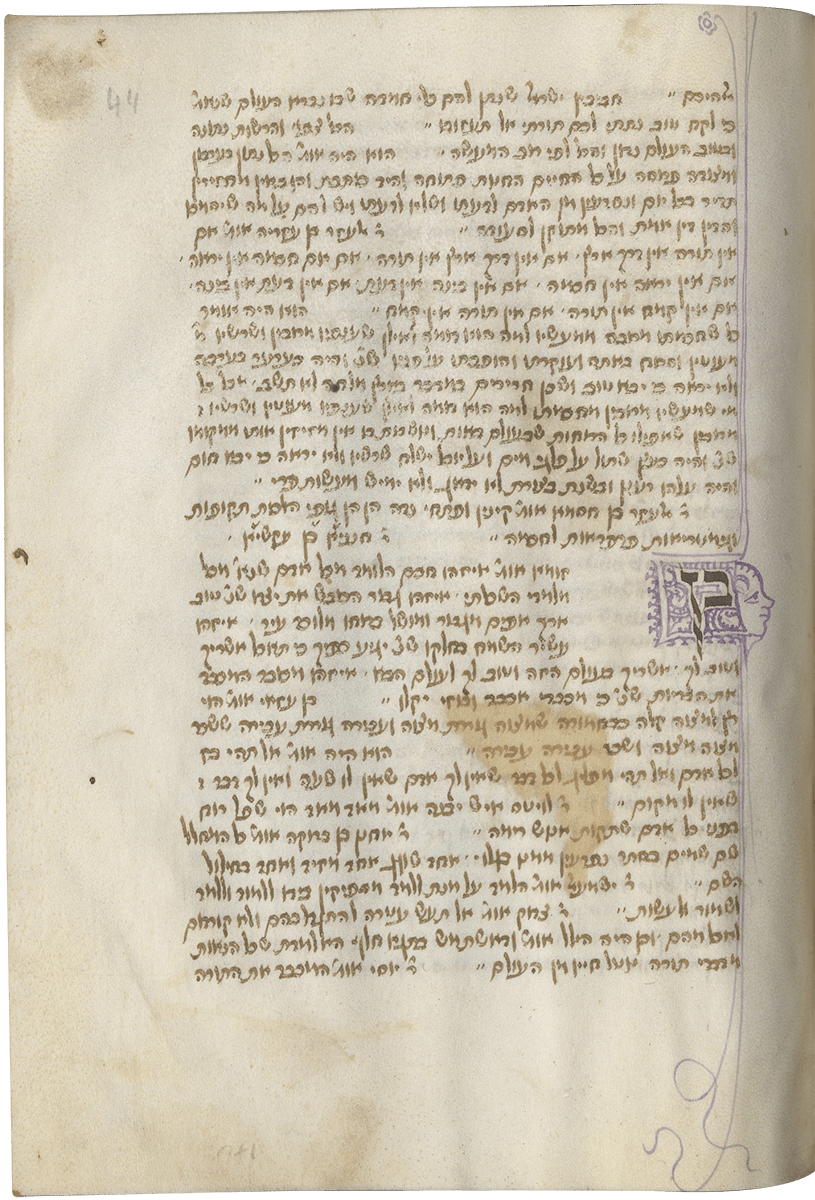 אלהיכם ״ חביבין ישראל שנתן להם כלי חמדה שבו נברא העולם שנאמ'
כי לקח טוב נתתי לכם תורתי אל תעזובו ״ הכל צפוי והרשות נתונה
ובטוב העולם נדון והכל לפי רוב המעשה ״ הוא היה אומ' הכל נתון בערבון
ומצודה פרוסה על כל החיים החנות פתוחה והיד כותבת והגבאין מחזירין
תדיר בכל יום ונפרעין מן האדם לדעתו ושלא לדעתו ויש להם על מה שיסמכו
והדין דין אמת והכל מתוקן לסעודה ״ ר' אלעזר בן עזריה אומ' אם
אין תורה אין דרך ארץ · אם אין דרך ארץ אין תורה · אם אין חכמה אין יראה ·
אם אין יראה אין חכמה · אם אין בינה אין דעת · אם אין דעת אין בינה ·
אם אין קמח אין תורה · אם אין תורה אין קמח ״ הוא היה אומר
כל שחכמתו מרובה ממעשיו למה הוא דומה לאילן שענפיו מרובין ושרשיו
מועטין והרוח באתה ועוקרתו והופכתו על פניו שנ' והיה כערער בערבה
ולא יראה כי יבא טוב ושכן חררים במדבר ארץ מלחה ולא תשב · אבל כל
מי שמעשיו מרובין מחכמתו למה הוא דומה לאילן שענפיו מועטין ושרשיו
מרובין שאפילו כל הרוחות שבעולם באות ונושבות בו אין מזיזין אותו ממקומו
שנ' והיה כעץ שתול על פלגי מים ועל יובל ישלח שרשיו ולא יראה כי יבא חום
והיה עלהו רענן ובשנת בצורת לא ידאג ולא ימיש מעשות פרי ״
ר' אלעזר בן חסמא אומ' קינין ופתחי נדה הן הן גופי הלכות תקופות
וגמטריאות פרפראות לחכמה ״ ר' חנניא בן עקשיא ·
בן זומא אומ' איזהו חכם הלומד מכל אדם שנא' מכל
מלמדי השכלתי · איזהו גבור הכובש את יצרו שנ' טוב
ארך אפים מגבור ומושל ברוחו מלוכד עיר · איזהו
עשיר השמח בחלקו שנ' יגיע כפיך כי תאכל אשריך
וטוב לך · אשריך בעולם הזה וטוב לך לעולם הבא · איזהו מכובד המכבד
את הבריות שנ' כי מכבדי אכבד ובוזי יקלו ״ בן עזאי אומ' הוי
רץ למצוה קלה כבחמורה שמצוה גוררת מצוה ועבירה גוררת עבירה ששכר
מצוה מצוה ושכר עבירה עבירה ״ הוא היה אומ' אל תהי בז
לכל אדם ואל תהי מפליג לכל דבר שאין לך אדם שאין לו שעה ואין לך דבר
שאין לו מקום ״ ר' לויטס איש יבנה אומ' מאד מאד הוי שפל רוח
בפני כל אדם שתקות אנוש רימה ״ ר' יוחנן בן ברוקה אומ' כל המחלל
שם שמים בסתר נפרעין ממנו בגלוי · אחד שוגג אחד מזיד ואחד בחילול
השם ״ ר' ישמעאל אומ' הלמד על מנת ללמד מספיקין בידו ללמוד וללמד
ולשמור ולעשות ״ ר' צדוק אומ' אל תעש עטרה להתגדל בהם ולא קורדום
לאכל מהם וכן היה הלל אומ' ודאשתמש בתגא חלף הא למדת שכל הנאות
מדברי תורה נוטל חייו מן העולם ״ ר' יוסי אומ' המכבד את התורה
44